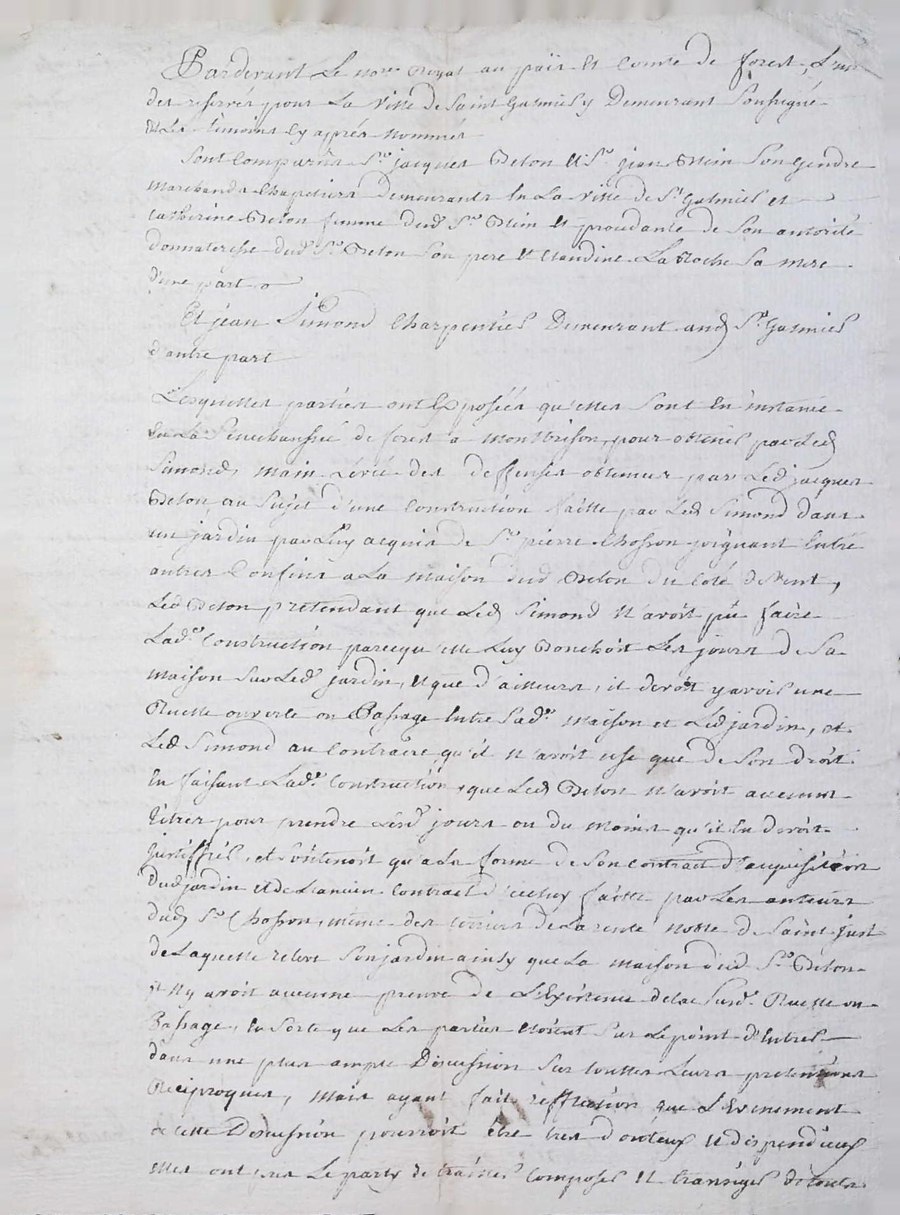 Pardevant Le no.re Royal au païs et Comté de forest, L'un
des reservés pour La ville de Saint Galmier y Demeurant Soussigné
et Les temoins Cy après nommés
Sont Comparûs S.r jacques Beton et S.r jean Stein Son gendre
Marchands Chapeliers demeurants En La ville de S.t Galmier et
Catherine Beton femme dud. S.r Stein et procedante de Son autorité
donnateresse dud. S.r Beton Son pere et Claudine La Roche Sa mere
d'une part
Et jean Simond Charpentier Demeurant aud S.t Galmier
d'autre part
Lesquelles parties ont Exposées qu'elles Sont En instance
En La Senechaussée de forest a Montbrison, pour obtenir par Led
Simond, main Levée des deffenses obtenues par Led jacques
Beton, au Sujet d'une Construction faitte par Led Simond dans
un jardin par Luy acquis de S.r pierre Chosson joignant Entre
autres Confins a La maison dud Beton du Coté de vent,
Led Beton, prétendant que Led Simond n'avoit pû faire
Lad.e Construction parcequ'elle Luy Bouchoit Les jours de Sa
maison Sur Led jardin, et que d'ailleurs, il devoit y avoir une
Ruelle ouverte ou Passage Entre Sad.e Maison et Led jardin, et
Led Simond au Contraire, qu'il n'avoit usé que de Son droit
En faisant Lad.e Construction, que Led Beton n'avoit aucuns
titres pour prendre Lesd jours ou du moins qu'il En devoit
justiffier, et Soutenoit qu'a La forme de Son Contract d'acquisition
Dud jardin et de L'ancien Contract d'iceluy faitte par Les auteurs
dud S.r Chosson, même des terriers de La rente noble de Saint just
de Laquelle releve Son jardin ainsy que La maison dud S.r Beton
il N'y avoit aucune preuve de L'Existence de La Susd.e Ruelle ou
Passage, En Sorte que Les parties Etoient Sur Le point d'Entrer
dans une plus ample Discussion Sur touttes Leurs pretentions
Reciproques, Mais ayant fait refflection que L'Evenement
de cette Discussion pourroit être tres douteux et dispendieux
Elles ont pris Le party de traitter Composer et transiger de toutes